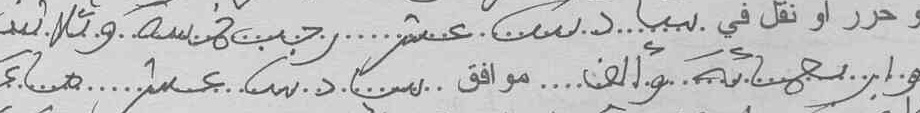 و حرر او نقل في سادس عشر رجب خمسة وثلاثين
واربعمائة وألف موافق سادس عشر ماي